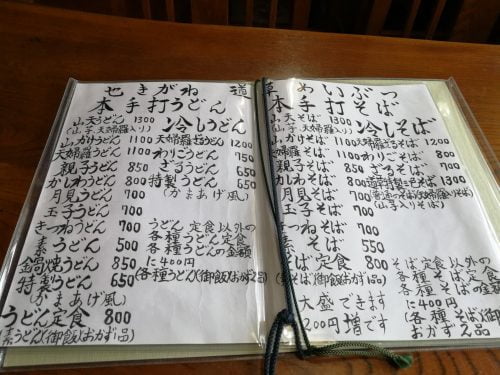 せきがね 道草 めいぶつ
本手打うどん
山天うどん 1300
(山芋、天婦羅入り)
山かけうどん 1100
天婦羅うどん 1100
親子うどん 850
かしわうどん 800
月見うどん 700
玉子うどん 700
きつねうどん 700
素うどん 500
鍋焼うどん 850
特製うどん 650
(かまあげ風)
うどん定食 800
(素うどん)(御飯)(おかず1品)
冷しうどん
天婦羅ざるうどん 1200
わりごうどん 750
ざるうどん 650
特製うどん 650
(かまあげ風)
うどん定食以外の
各種うどん定食
各種うどんの金額
に400円
(各種うどん)(御飯)(おかず2品)
本手打そば
山天そば 1300
(山芋、天婦羅入り)
山かけそば 1100
天婦羅そば 1100
親子そば 850
かしわそば 800
月見そば 700
玉子そば 700
きつねそば 700
素そば 550
そば定食 850
(素そば)(御飯)(おかず1品)
大盛できます
200円増です
冷しそば
天婦羅ざるそば 1200
わりごそば 800
ざるそば 700
道草特製ざるそば 1300
(普通のざるそば)(天婦羅入りそば)
(山芋入りそば)
そば定食以外の
各種そば定食
各種そばの金額
に400円
(各種そば)(御飯)
(おかず2品)